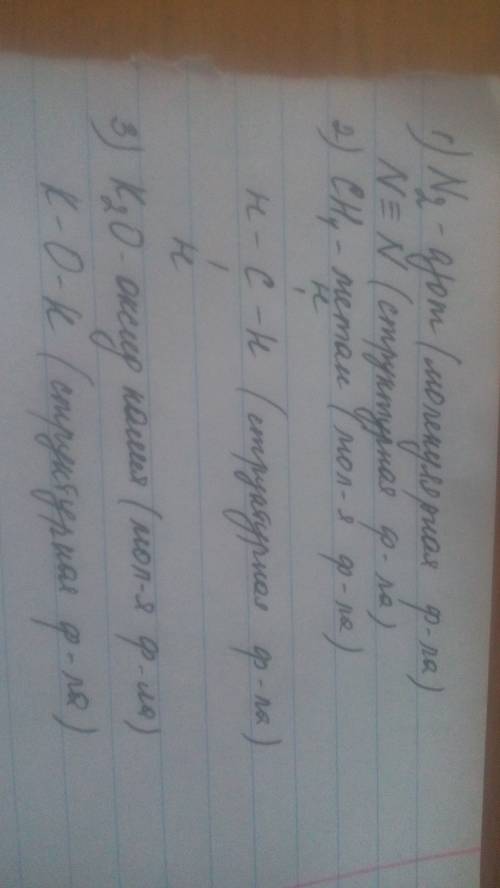 1) N2 - азот (молекулярная ф-ла)
N≡N (структурная ф-ла)
2) CH4 - метан (мол-я ф-ла)
H
H - C - H (структурная ф-ла)
H
3) K2O - оксид калия (мол-я ф-ла)
K - O - K (структурная ф-ла)